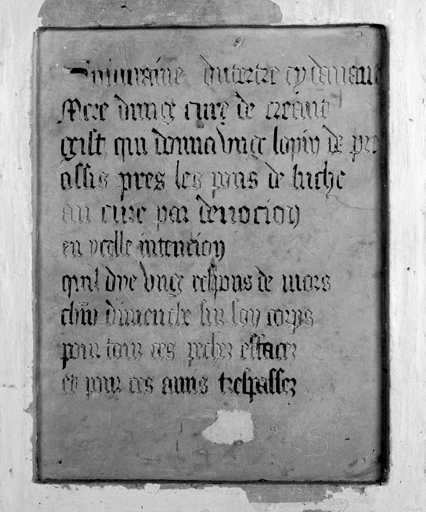 dutertre cy devant
Mere dunge cure de
gist qui donna unge lopin de pre
assis pres les pons de
au cure par devocion
en ycelle intencion
quil dye unge respons de mors
chun dimenche sur son corps
pour tous ces pechez effacer
et pour ces amis trespassez